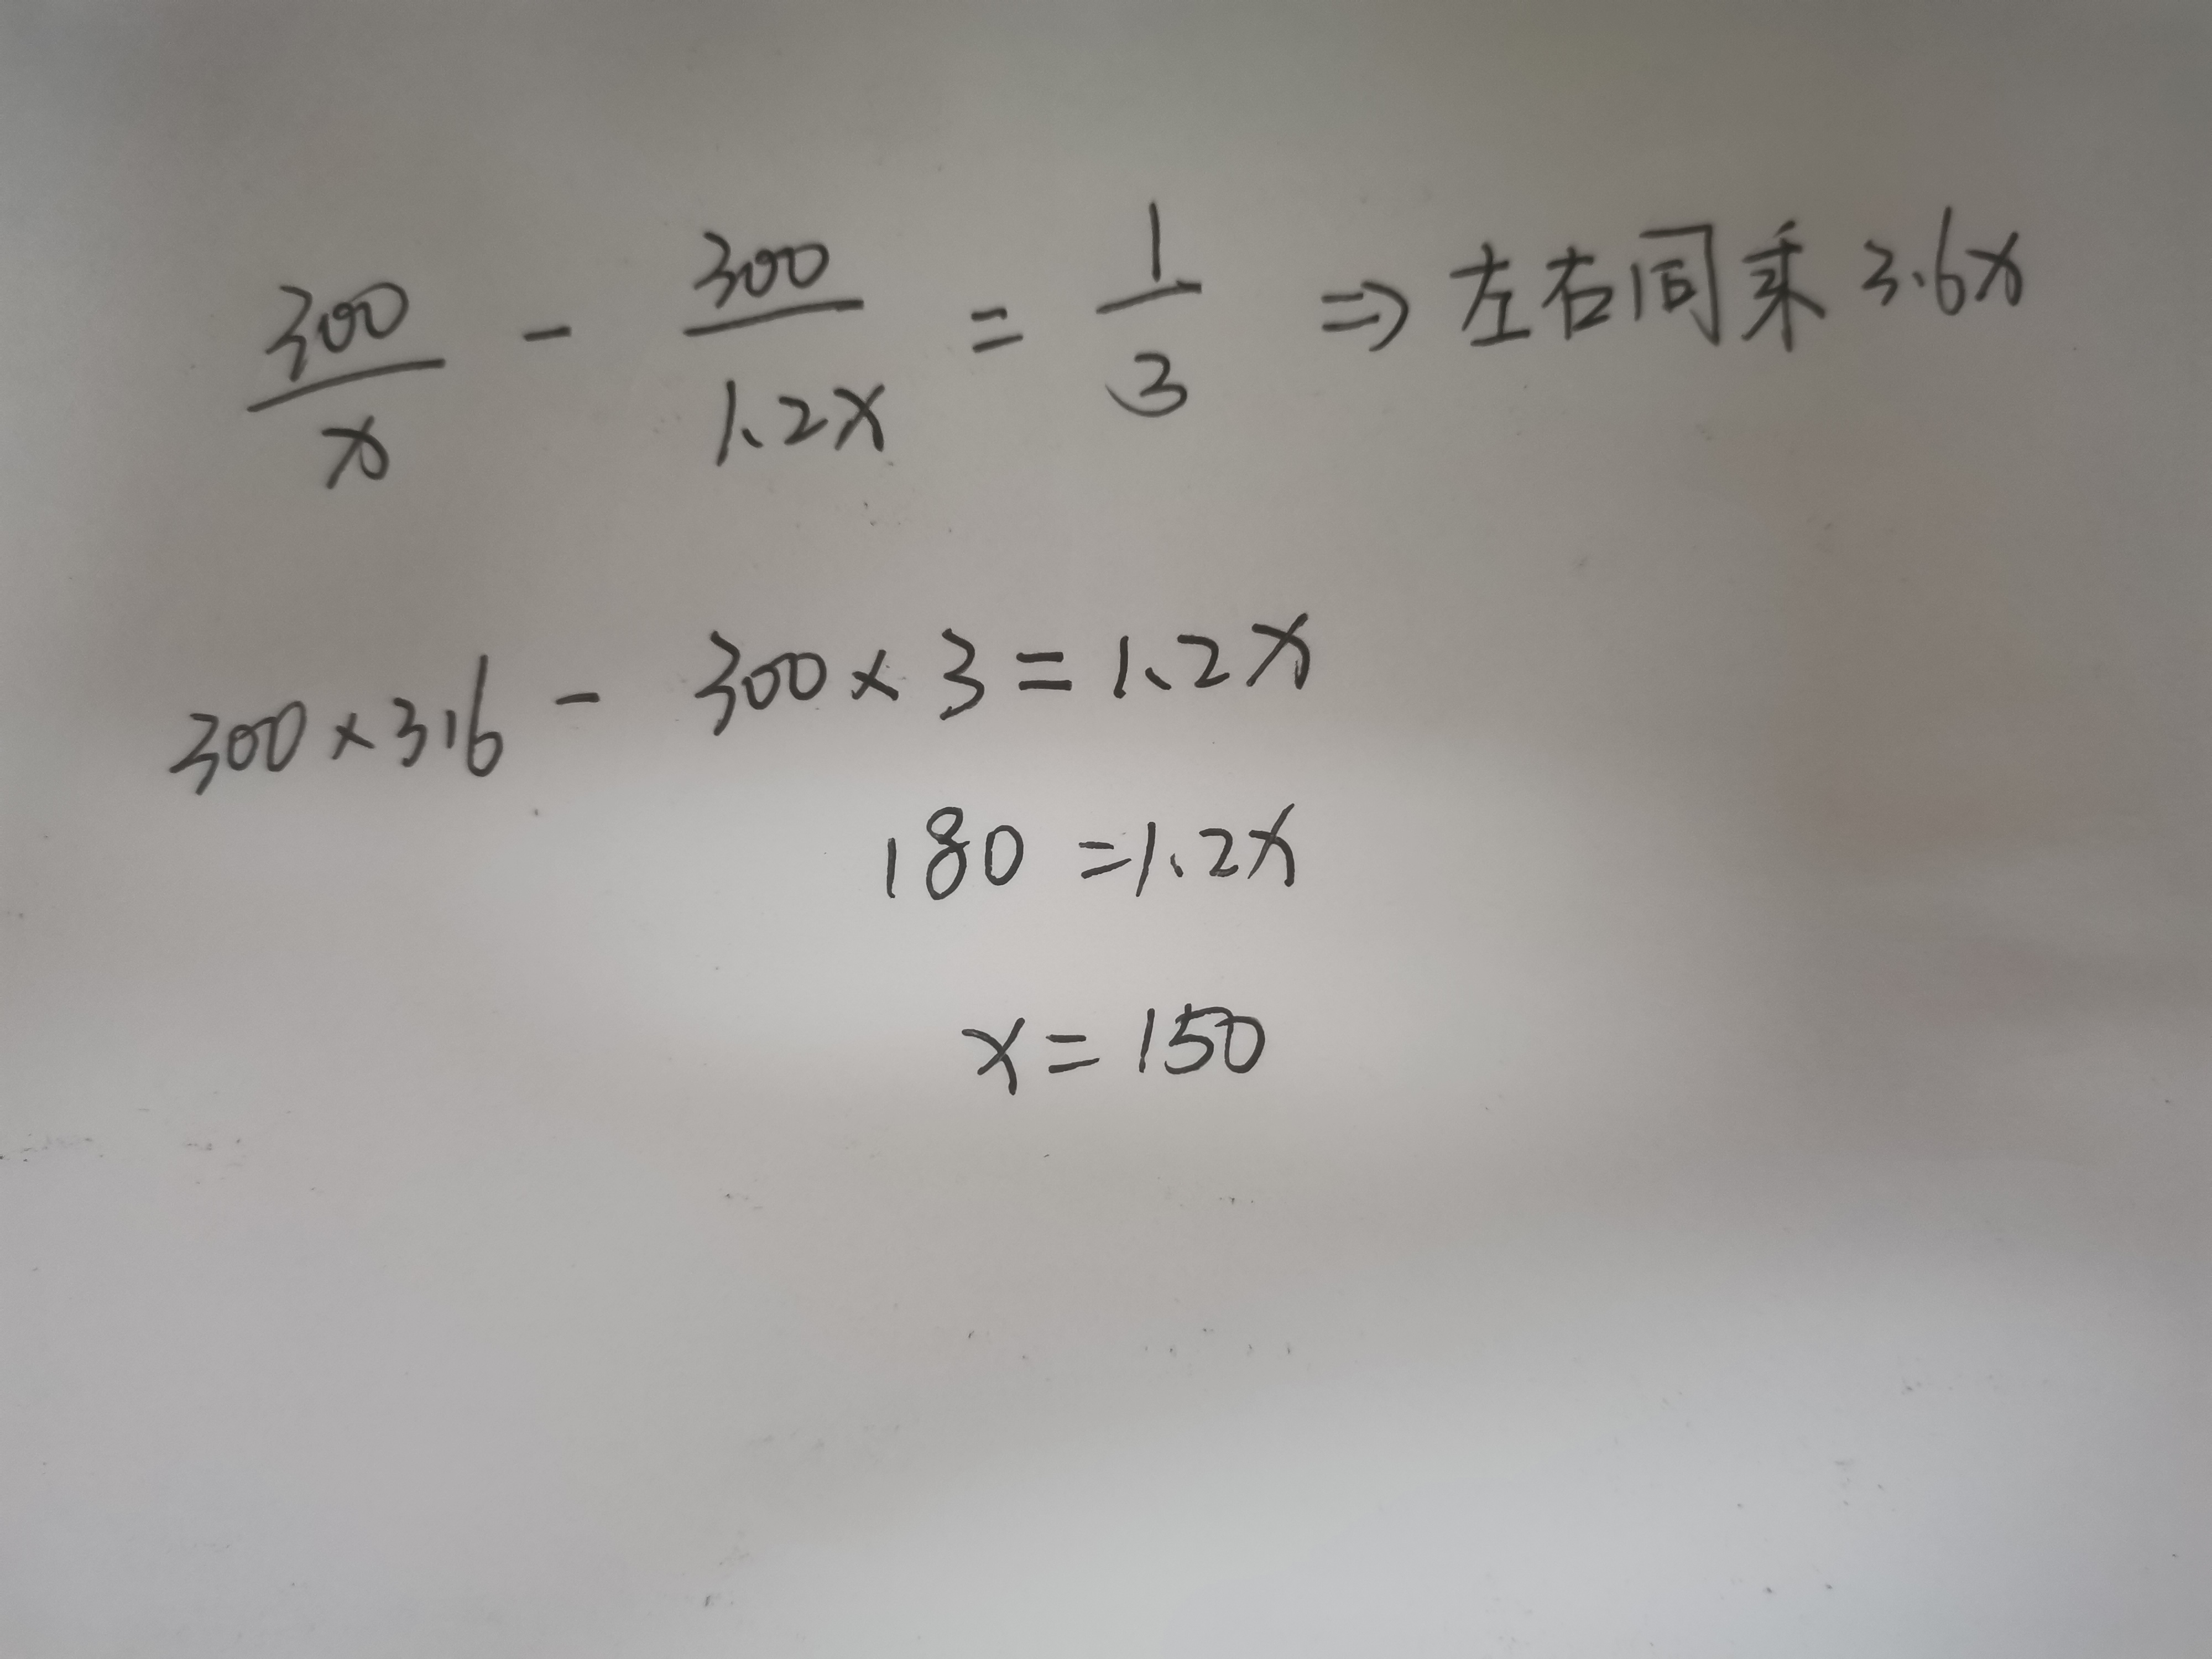 300/x - 300/1.2x = 1/3 ⇒ 左右同乘 3.6x
300×3.6 - 300×3 = 1.2x
180 = 1.2x
x = 150